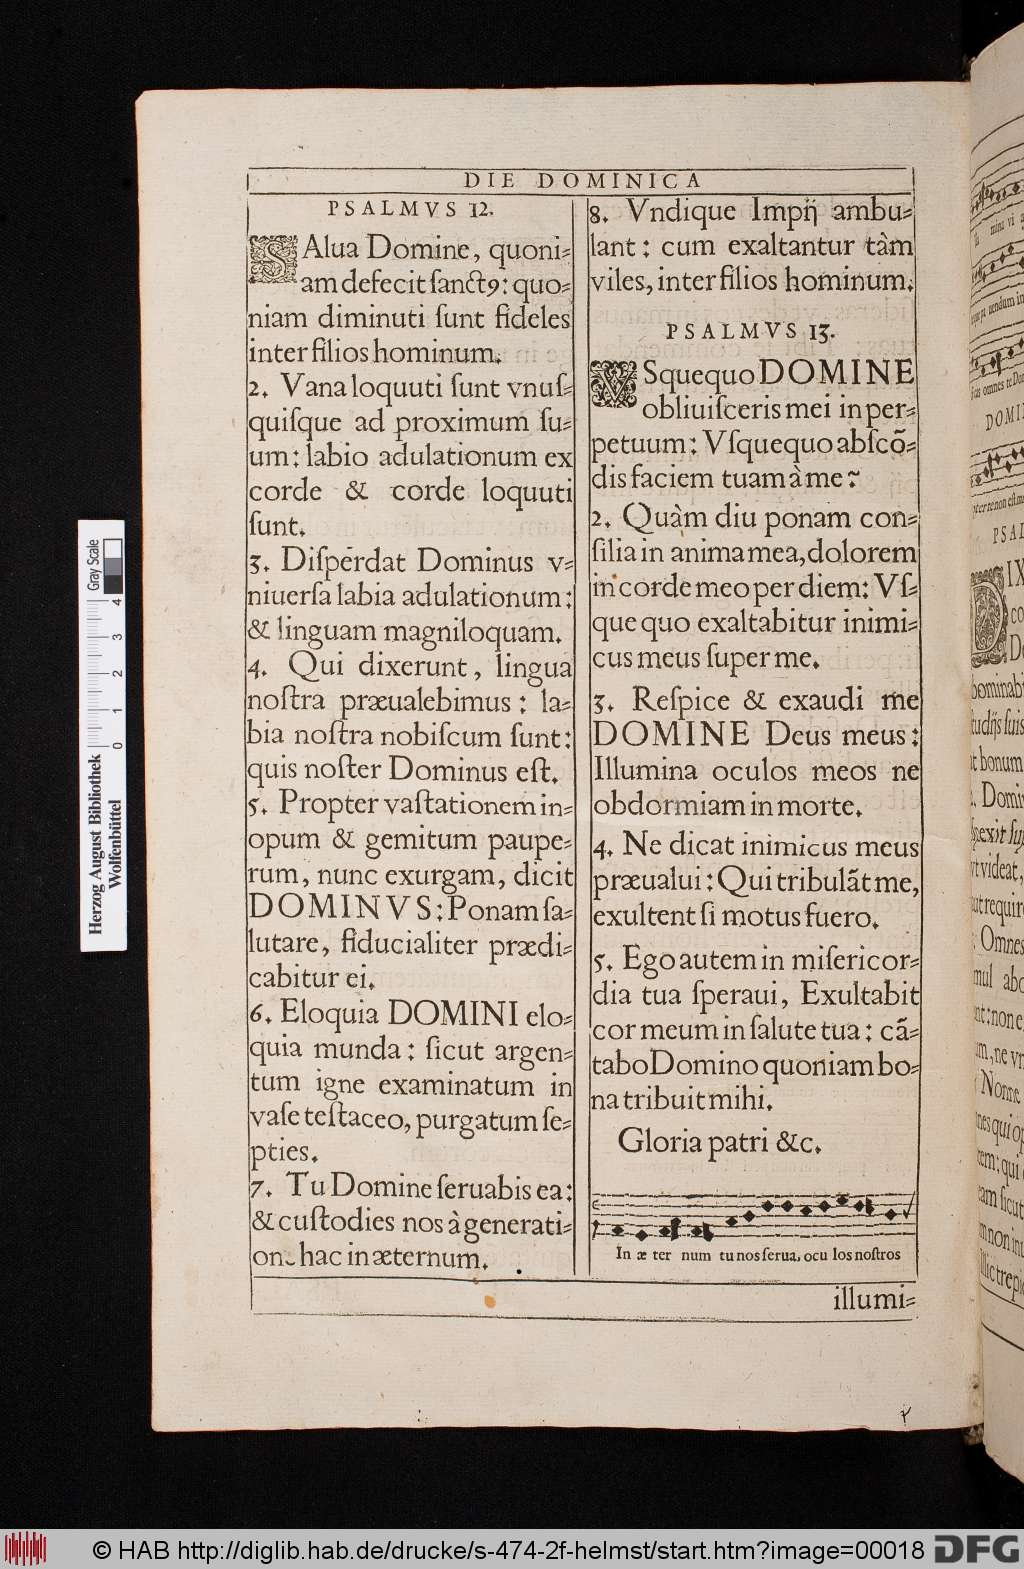 DIE DOMINICA
PSALMVS 12.
SAlua Domine, quoni=
am defecit ſanctꝰ: quo=
niam diminuti ſunt fideles
inter filios hominum.
2. Vana loquuti ſunt vnuſ=
quiſque ad proximum ſu=
um: labio adulationum ex
corde & corde loquuti
ſunt.
3. Diſperdat Dominus v=
niuerſa labia adulationum:
& linguam magniloquam.
4. Qui dixerunt, lingua
noſtra præualebimus: la=
bia noſtra nobiſcum ſunt:
quis noſter Dominus eſt.
5. Propter vaſtationem in=
opum & gemitum paupe=
rum, nunc exurgam, dicit
DOMINVS: Ponam ſa=
lutare, fiducialiter prædi=
cabitur ei.
6. Eloquia DOMINI elo=
quia munda: ſicut argen=
tum igne examinatum in
vaſe teſtaceo, purgatum ſe=
pties.
7. Tu Domine ſeruabis ea:
& cuſtodies nos à generati=
one hac in æternum.
8. Vndique Impij ambu=
lant: cum exaltantur tàm
viles, inter filios hominum.
PSALMVS 13.
VSquequo DOMINE
obliuiſceris mei in per=
petuum: Vſquequo abſcõ=
dis faciem tuam à me?
2. Quàm diu ponam con=
ſilia in anima mea, dolorem
in corde meo per diem: Vſ=
que quo exaltabitur inimi=
cus meus ſuper me.
3. Reſpice & exaudi me
DOMINE Deus meus:
Illumina oculos meos ne
obdormiam in morte.
4. Ne dicat inimicus meus
præualui: Qui tribulãt me,
exultent ſi motus fuero.
5. Ego autem in miſericor=
dia tua ſperaui, Exultabit
cor meum in ſalute tua: cã=
tabo Domino quoniam bo=
na tribuit mihi.
Gloria patri &c.
In æ ter num tu nos ſerua, ocu los noſtros
illumi=
DOMI
PSAL
IX
co
De
bominabi
ſtudijs ſuis
Omnes
Nonne
Gray Scale
4
3
2
1
0
Herzog August Bibliothek
Wolfenbüttel
© HAB http://diglib.hab.de/drucke/s-474-2f-helmst/start.htm?image=00018
DFG